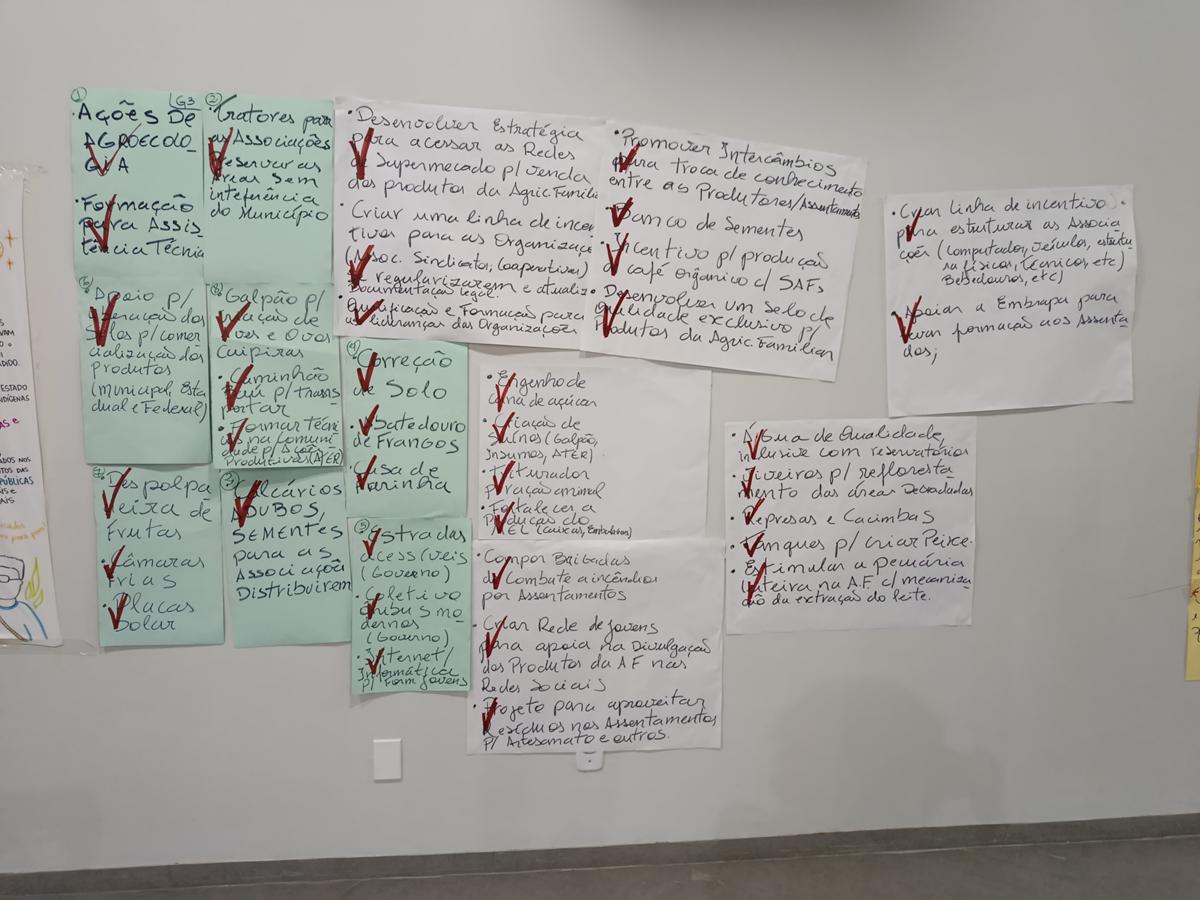 ① G3
• AÇÕES DE
AGROECOLO-
GIA
• Formação
para Assis
tência Técnica
②
• Tratores para
as Associações
Reservar as
Áreas Sem
inteferência
do Município
• Desenvolver Estratégia
para acessar as Redes
de Supermecado p/ venda
dos produtos da Agric. Famili
• Criar uma linha de incen
tivos para as Organizaçõe
(Assoc. Sindicatos, Cooperativas)
se regularizarem e atualiz
Documentação legal.
• Qualificação e Formação para
as lideranças das Organizações
• Promover Intercâmbios
para troca de conhecimento
entre as Produtores/Assentamento
• Banco de Sementes
• Incentivo p/ produção
de café orgânico c/ SAFs
• Desenvolver um Selo de
Qualidade exclusivo p/
Produtos da Agric. Familiar
• Criar linha de incentivo
para estruturar as Associa
ções (Computador, veículos, estrutu
ra físicas, técnicos, etc)
Bebedouros, etc)
• Apoiar a Embrapa para
levar formação aos Assenta-
dos;
• Apoio p/
liberação dos
Selos p/ comer
cialização dos
produtos
(municipal, Esta
dual e Federal)
• Galpão p/
criação de
Aves e Ovos
Caipiras
• Caminhão
Baú p/ trans
portar
• Formar técni
cos na comuni
dade p/ Ações
Produtivas (ATER)
④
• Correção
de Solo
• Abatedouro
de Frangos
• Casa de
Farinha
• Engenho de
cana de açúcar
• Criação de
Suínos (Galpão,
Insumos, ATER)
• Triturador
p/ ração animal
• Fortalecer a
Produção do
MEL (Caixas, Embalavas)
• Água de Qualidade,
inclusive com reservatórios
• Viveiros p/ refloresta
mento das áreas Degradadas
• Represas e Cacimbas
• Tanques p/ criar Peixe.
• Estimular a pecuária
leiteira na A.F c/ mecaniza
ção da extração do leite.
• Despolpa
deira de
Frutas
• Câmaras
Frias
• Placas
Solar
③
• Calcários
ADUBOS,
SEMENTES
para as
Associaçõe
Distribuirem
⑤
• Estradas
acessíveis
(Governo)
• Coletivo
ônibus mo
dernos
(Governo)
• Internet/
Informática
p/ Form Jovens
• Compor Brigadas
de Combate a incêndios
por Assentamentos
• Criar Rede de jovens
para apoia na Divulgação
dos Produtos da AF nas
Redes Sociais
• Projeto para aproveitar
Resíduos nos Assentamentos
p/ Artesanato e outros.
DIDO.
ESTADO
DÍGENAS
PÚBLICAS